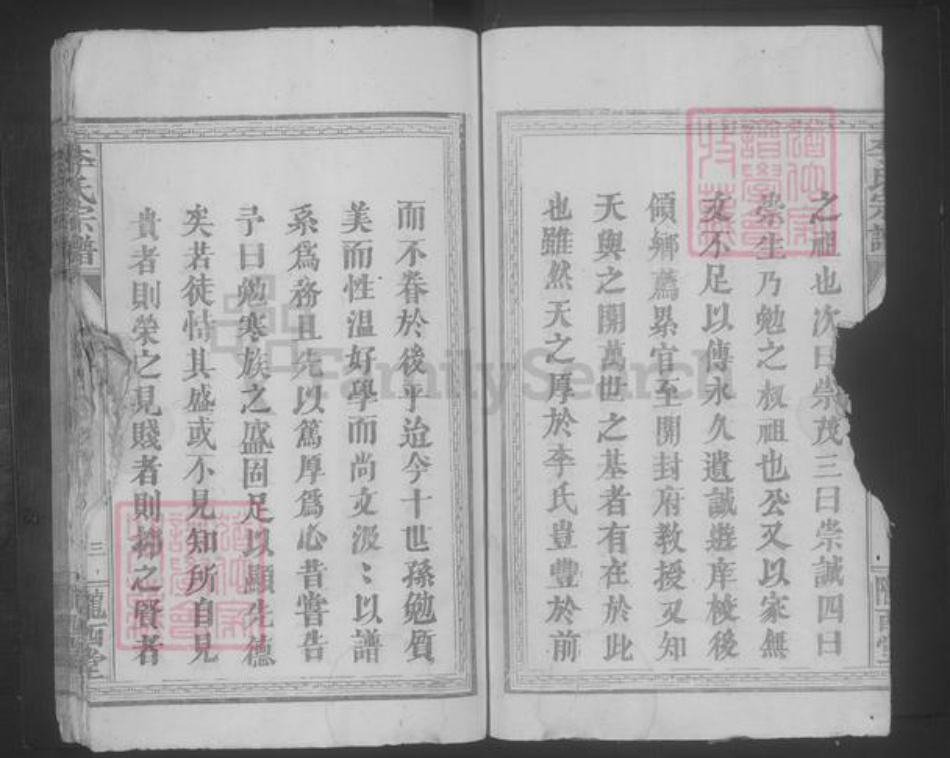 之祖也次曰崇茂三曰崇誠四曰
崇生乃勉之叔祖也公又以家無
文不足以傳永久遺誠遊庠校後
領鄉薦累官至開封府教授又知
天與之開萬世之基者有在於此
也雖然天之厚於李氏豈豐於前
而不眷於後乎迨今十世孫勉質
美而性溫好學而尚文汲〻以譜
系為務且先以篤厚為心昔嘗告
予曰勉寒族之盛固足以顯先德
矣若徒恃其盛或不見知所自見
貴者則榮之見賤者則 之賢者
李氏宗譜
三
隴西堂
李氏宗譜
隴西堂
FamilySearch